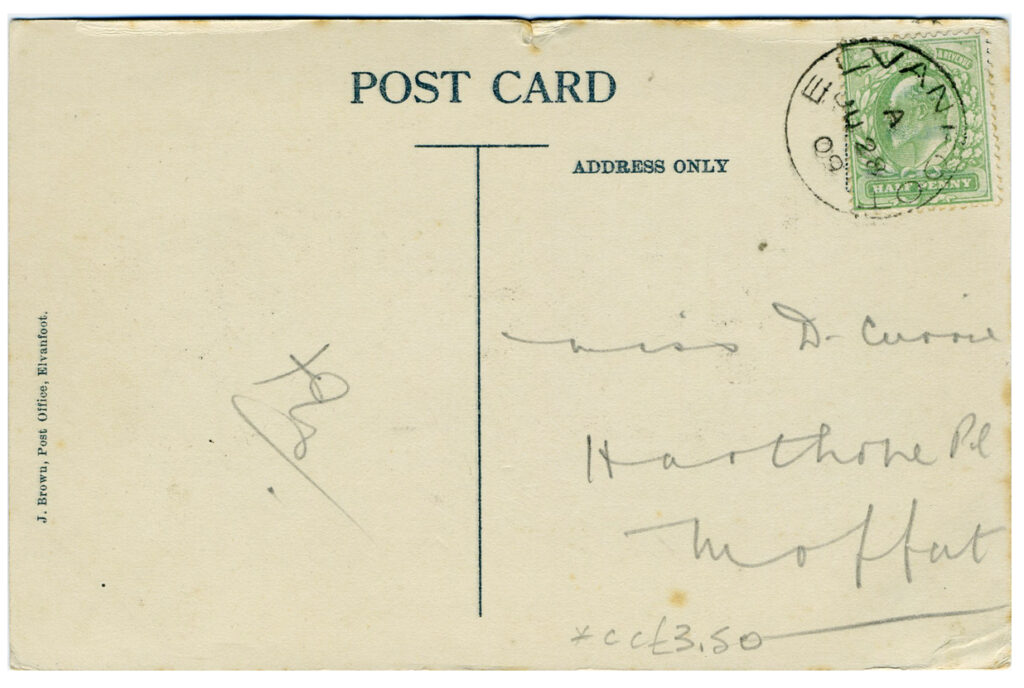 POST CARD
ADDRESS ONLY
ELVANFOOT
A
JU 28
09
HALF PENNY
J. Brown, Post Office, Elvanfoot.
Miss D. Currie
Harthope Pl
Moffat
*cc£3.50